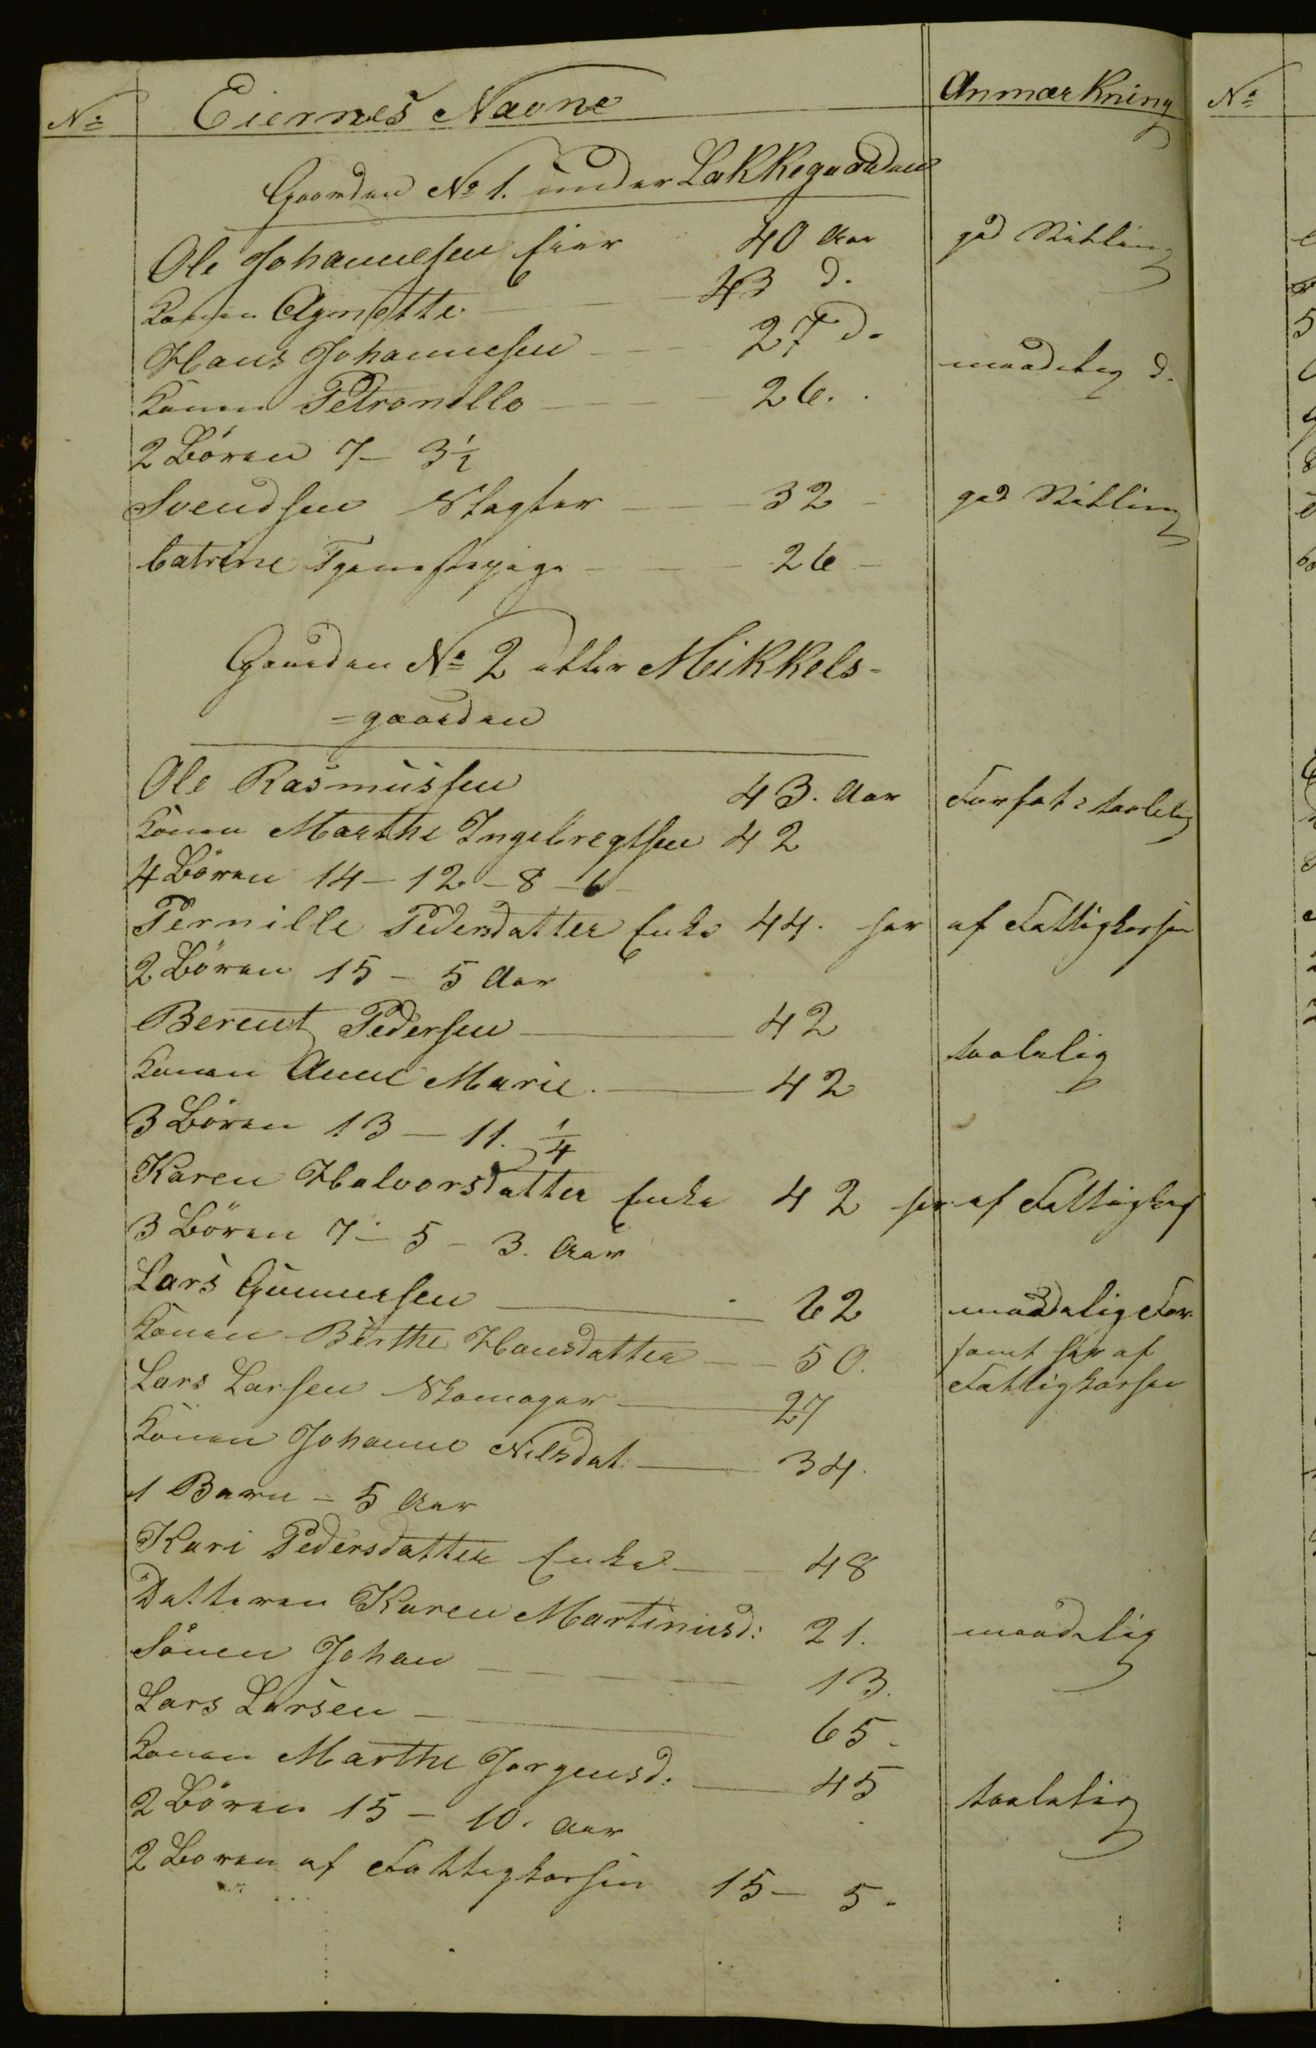 No Eiernes Navne Anmærkning
Gaarden No 1. under Lakkegaarden
Ole Johannesen Eier 40 Aar god Stilling
Konen Agnethe 43 d.
Hans Johannesen 27 d.
maadelig d.
Konen Petronille 26.
2 Børen 7 - 3½
Svendsen Slagter 32 god Stilling
Catrine Tjenestepige 26
Gaarden No 2 etter Mikkels-
=gaarden
Ole Rasmussen 43. Aar Forfat: taalelig
Konen Marthe Ingebregtsen 42
4 Børen 14 - 12 - 8 - 6
Pernille Pedersdatter Enke 44. har af Fattigkassen
2 Børen 15 - 5 Aar
Berent Pedersen 42
taalelig
Konen Anne Marie. 42
3 Børen 13 - 11. ¼
Karen Halvorsdatter Enke 42 har af Fattigkas
3 Børen 7 - 5 - 3. Aar
Lars Gunnersen 62 maadelig For
Konen Berthe Hansdatter 50. samt har af
Lars Larsen Skomager 27 Fattigkassen
Konen Johanne Nilsdat. 34.
1 Barn - 5 Aar
Kari Pedersdatter Enke 48
Datteren Karen Martinusd: 21. maadelig
Sönen Johan 13.
Lars Larsen 65.
Konen Marthe Jorgensd. 45
taalelig
2 Børen 15 - 10. Aar
2 Boren af Fattigkassen 15 - 5.
No